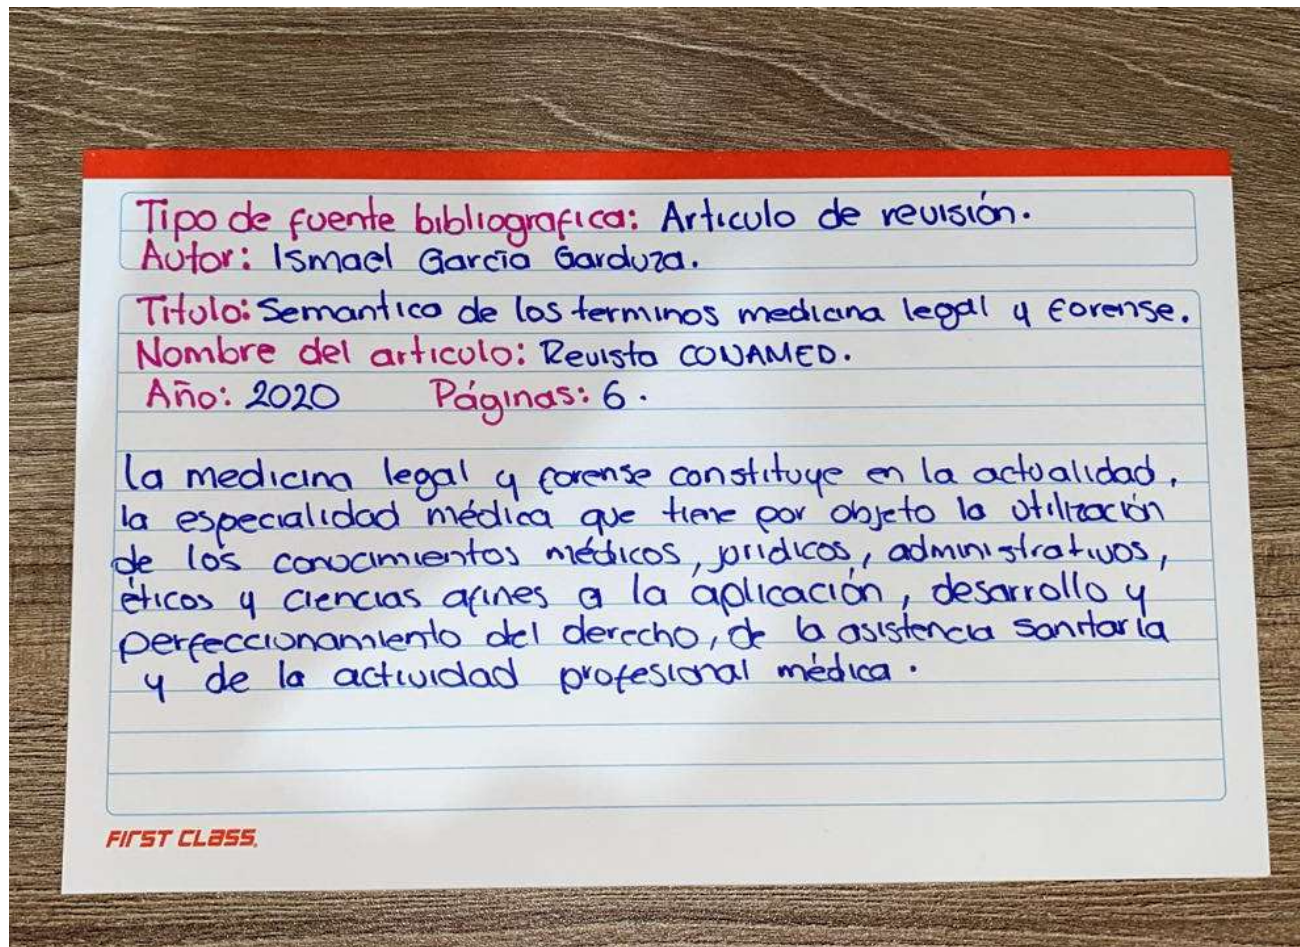 Tipo de fuente bibliografica: Articulo de revisión.
Autor: Ismael García Garduza.
Titulo: Semantico de los terminos medicina legal y forense.
Nombre del articulo: Revista CONAMED.
Año: 2020 Páginas: 6.
la medicina legal y forense constituye en la actualidad,
la especialidad médica que tiene por objeto la utilización
de los conocimientos médicos, jurídicos, administrativos,
éticos y ciencias afines a la aplicación, desarrollo y
perfeccionamiento del derecho, de la asistencia sanitaria
y de la actividad profesional médica.
FIRST CLASS.